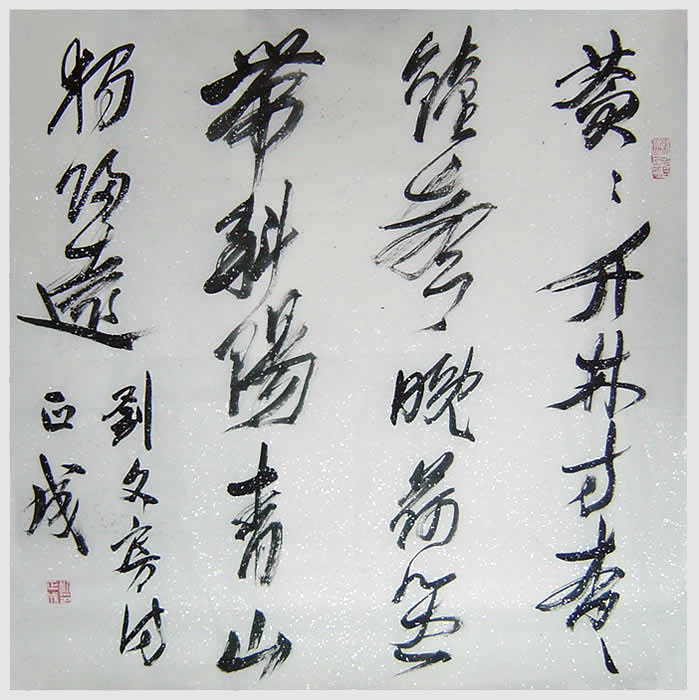 蒼〻竹林寺杳〻
鐘聲晚荷笠
帶斜陽青山
獨歸遠
劉文房詩
正成